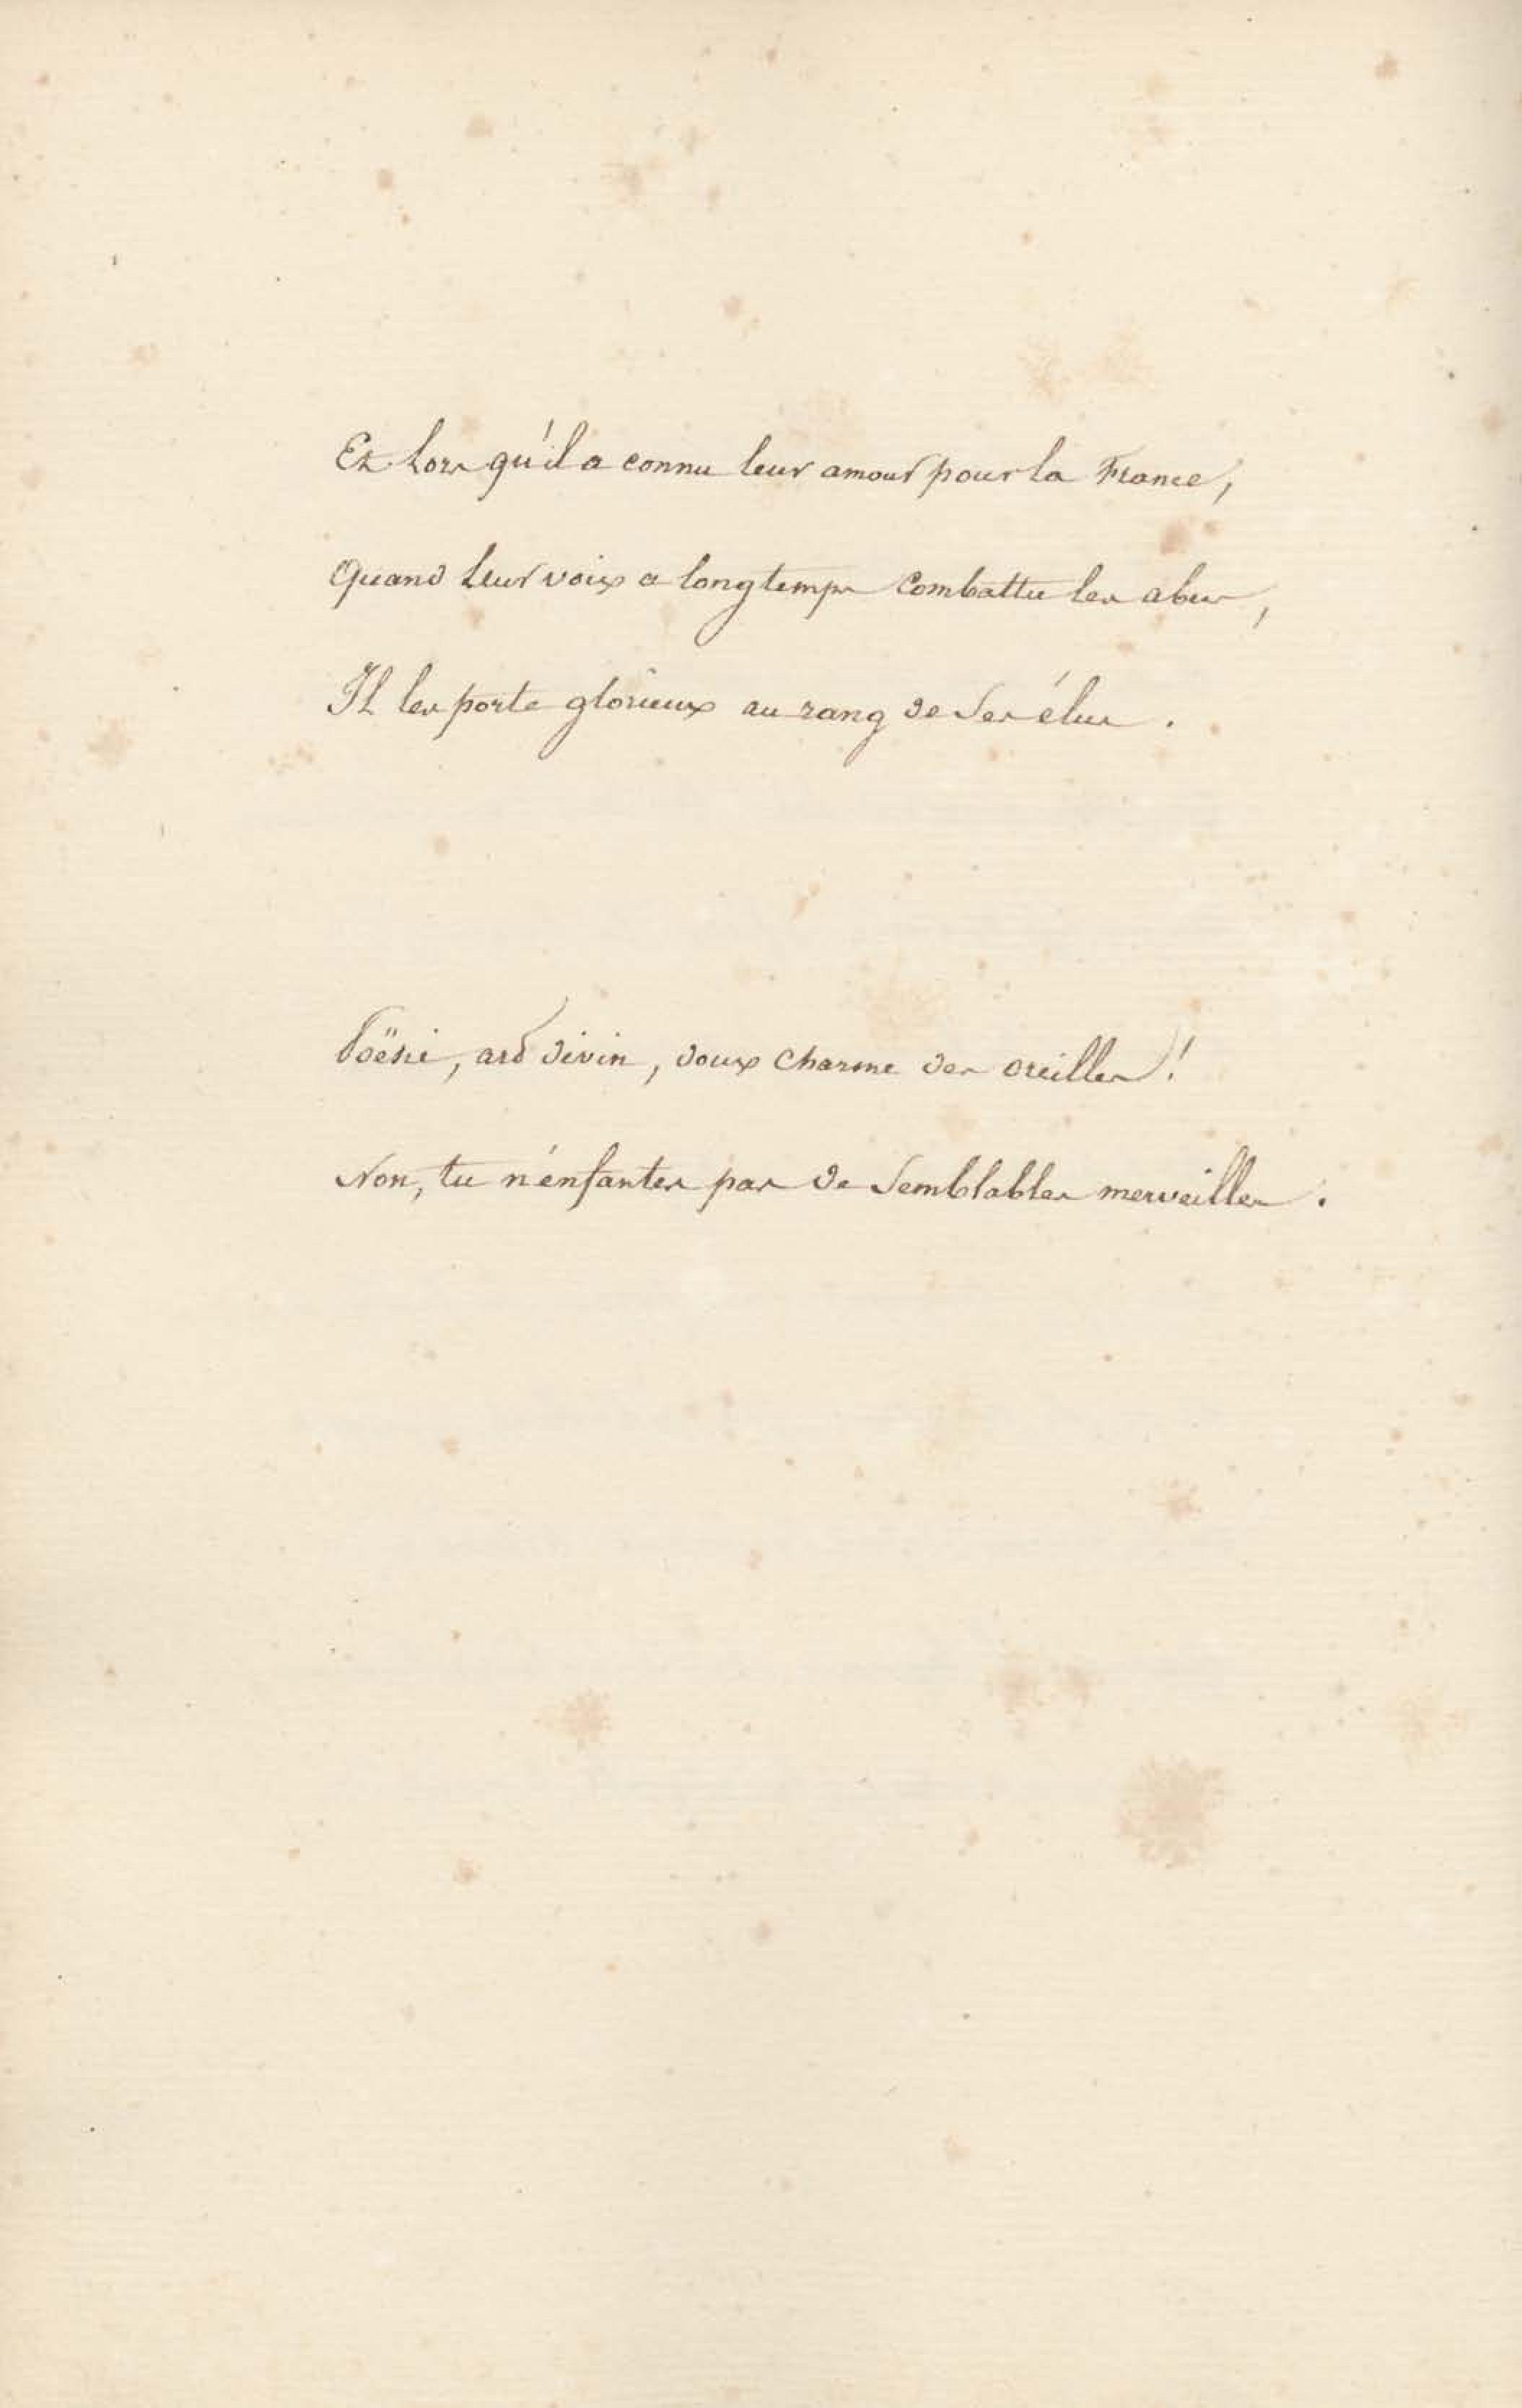 Et lors qu'il a connu leur amour pour la France,
Quand leur voix a longtemps combattu les abus,
Il les porte glorieux au rang de ses élus.
Poësi, art divin, doux charme des oreilles !
Non, tu n'enfantes pas de semblables merveilles.